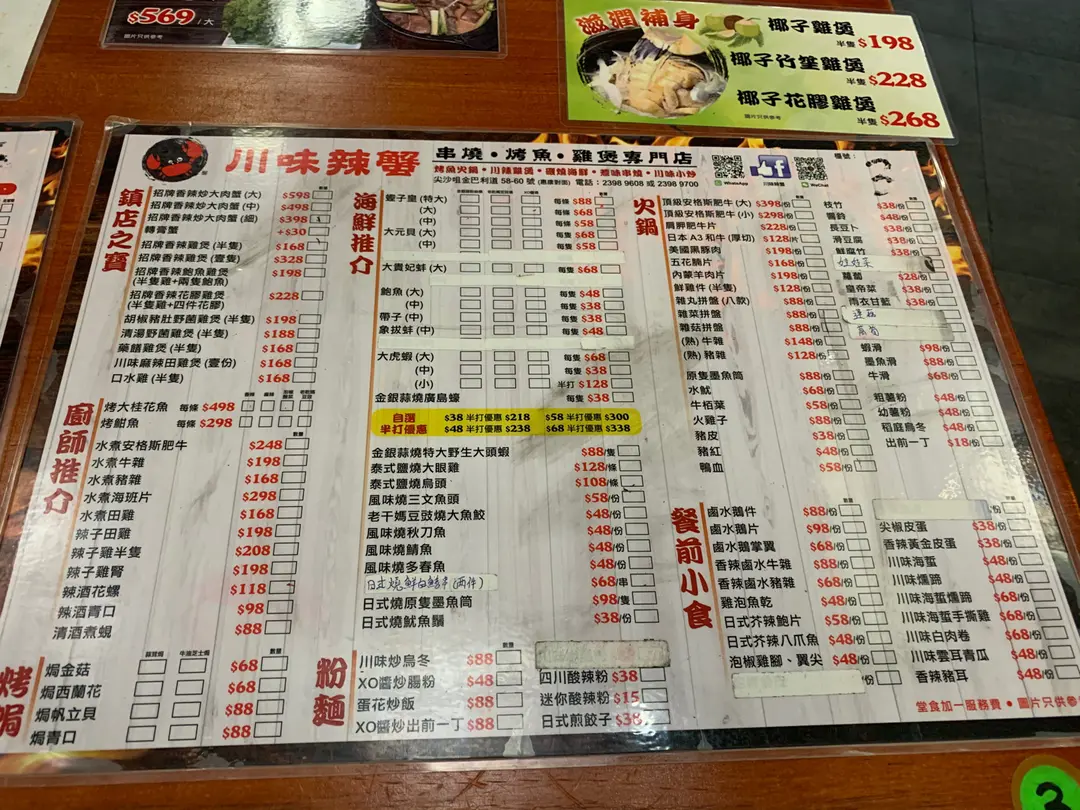 $569/大
圖片只供參考
滋潤補身
椰子雞煲
半隻 $198
椰子竹笙雞煲
半隻 $228
椰子花膠雞煲
半隻 $268
圖片只供參考
川味辣蟹
串燒・烤魚・雞煲專門店
尖沙咀金巴利道 58-60 號 (惠康對面) 電話：2398 9608 或 2398 9700
WhatsApp
f
川味辣蟹
WeChat
檯號：
鎮店之寶
招牌香辣炒大肉蟹 (大) $598
招牌香辣炒大肉蟹 (中) $498
招牌香辣炒大肉蟹 (細) $398
轉膏蟹 +$30
招牌香辣雞煲 (半隻) $168
招牌香辣雞煲 (壹隻) $328
招牌香辣鮑魚雞煲 $198
(半隻雞+兩隻鮑魚)
招牌香辣花膠雞煲 $228
(半隻雞+四件花膠)
胡椒豬肚野菌雞煲 (半隻) $198
清湯野菌雞煲 (半隻) $188
藥膳雞煲 (半隻) $168
川味麻辣田雞煲 (壹份) $168
口水雞 (半隻) $168
廚師推介
烤大桂花魚 每條 $498
烤鮒魚 每條 $298
水煮安格斯肥牛 $248
水煮牛雜 $198
水煮豬雜 $168
水煮海班片 $298
水煮田雞 $168
辣子田雞 $198
辣子雞半隻 $208
辣子雞腎 $198
辣酒花螺 $118
辣酒青口 $98
清酒煮蜆 $88
烤焗
焗金菇 $68
焗西蘭花 $68
焗帆立貝 $88
焗青口 $88
海鮮推介
蟶子皇 (特大) 每條 $88
(大) 每條 $68
(中) 每條 $58
大元貝 (大) 每隻 $68
(中) 每隻 $58
大貴妃蚌 (大) 每隻 $68
鮑魚 (大) 每隻 $48
(中) 每隻 $38
帶子 (中) 每隻 $38
象拔蚌 (中) 每隻 $48
大虎蝦 (大) 每隻 $68
(中) 每隻 $38
(小) 半打 $128
金銀蒜燒廣島蠔 每隻 $38
自選 $38 半打優惠 $218 $58 半打優惠 $300
半打優惠 $48 半打優惠 $238 $68 半打優惠 $338
金銀蒜燒特大野生大頭蝦 $88/隻
泰式鹽燒大眼雞 $128/條
泰式鹽燒烏頭 $108/條
風味燒三文魚頭 $58/份
老干媽豆豉燒大魚鮫 $48/份
風味燒秋刀魚 $48/份
風味燒鯖魚 $48/份
風味燒多春魚 $48/份
$68/串
日式燒原隻墨魚筒 $98/隻
日式燒魷魚鬚 $38/份
粉麵
川味炒烏冬 $88
XO醬炒腸粉 $48
蛋花炒飯 $88
XO醬炒出前一丁 $88
四川酸辣粉 $38
迷你酸辣粉 $15
日式煎餃子 $38
火鍋
頂級安格斯肥牛 (大) $398/份
頂級安格斯肥牛 (小) $298/份
肩胛肥牛片 $228/份
日本 A3 和牛 (厚切) $128/片
美國黑豚肉 $198/份
五花腩片 $168/份
內蒙羊肉片 $198/份
鮮雞件 (半隻) $128/份
雜丸拼盤 (八款) $88/份
雜菜拼盤 $88/份
雜菇拼盤 $88/份
(熟) 牛雜 $148/份
(熟) 豬雜 $128/份
原隻墨魚筒 $88/份
水魷 $68/份
牛栢葉 $58/份
火雞子 $88/份
豬皮 $38/份
豬紅 $48/份
鴨血 $58/份
枝竹 $38/份
響鈴 $48/份
長豆卜 $38/份
滑豆腐 $38/份
鮮腐竹 $38/份
娃娃菜
蘿蔔 $28/份
皇帝菜 $38/份
雨衣甘藍 $38/份
蝦滑 $98/份
墨魚滑 $88/份
牛滑 $68/份
粗薯粉 $48/份
幼薯粉 $48/份
稻庭烏冬 $48/份
出前一丁 $18/份
餐前小食
鹵水鵝件 $88/份
鹵水鵝片 $98/份
鹵水鵝掌翼 $68/份
香辣鹵水牛雜 $88/份
香辣鹵水豬雜 $68/份
雞泡魚乾 $48/份
日式芥辣鮑片 $58/份
日式芥辣八爪魚 $48/份
泡椒雞腳、翼尖 $48/份
尖椒皮蛋 $38/份
香辣黃金皮蛋 $38/份
川味海蜇 $48/份
川味燻蹄 $48/份
川味海蜇燻蹄 $68/份
川味海蜇手撕雞 $68/份
川味白肉卷 $68/份
川味雲耳青瓜 $48/份
香辣豬耳 $48/份
堂食加一服務費・圖片只供參